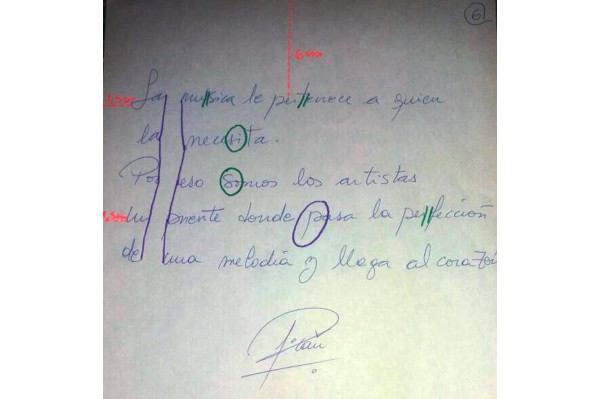 6
6 cm
La musica le pertenece a quien
la necesita.
Por eso somos los artistas
un puente donde pasa la perfección
de una melodía y llega al corazón